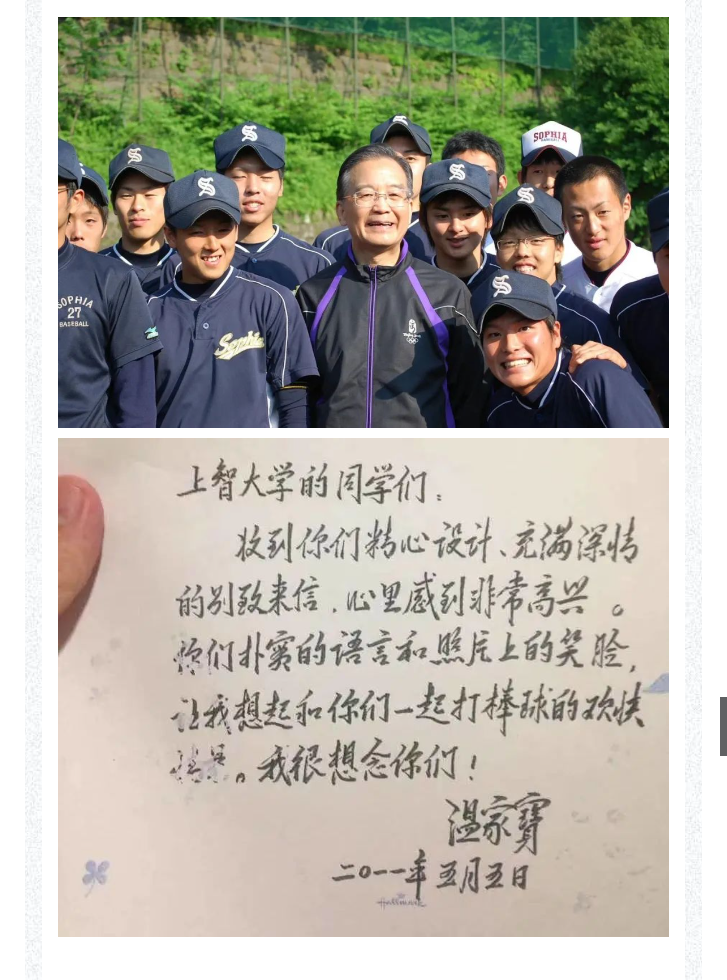 S
S
S
S
S
S
S
SOPHIA
SOPHIA
27
BASEBALL
Sophia
上智大学的同学们：
收到你们精心设计、充满深情
的别致来信，心里感到非常高兴。
你们朴實的语言和照片上的笑脸，
让我想起和你们一起打棒球的欢快
。我很想念你们！
温家寶
二〇一一年五月五日
Hallmark